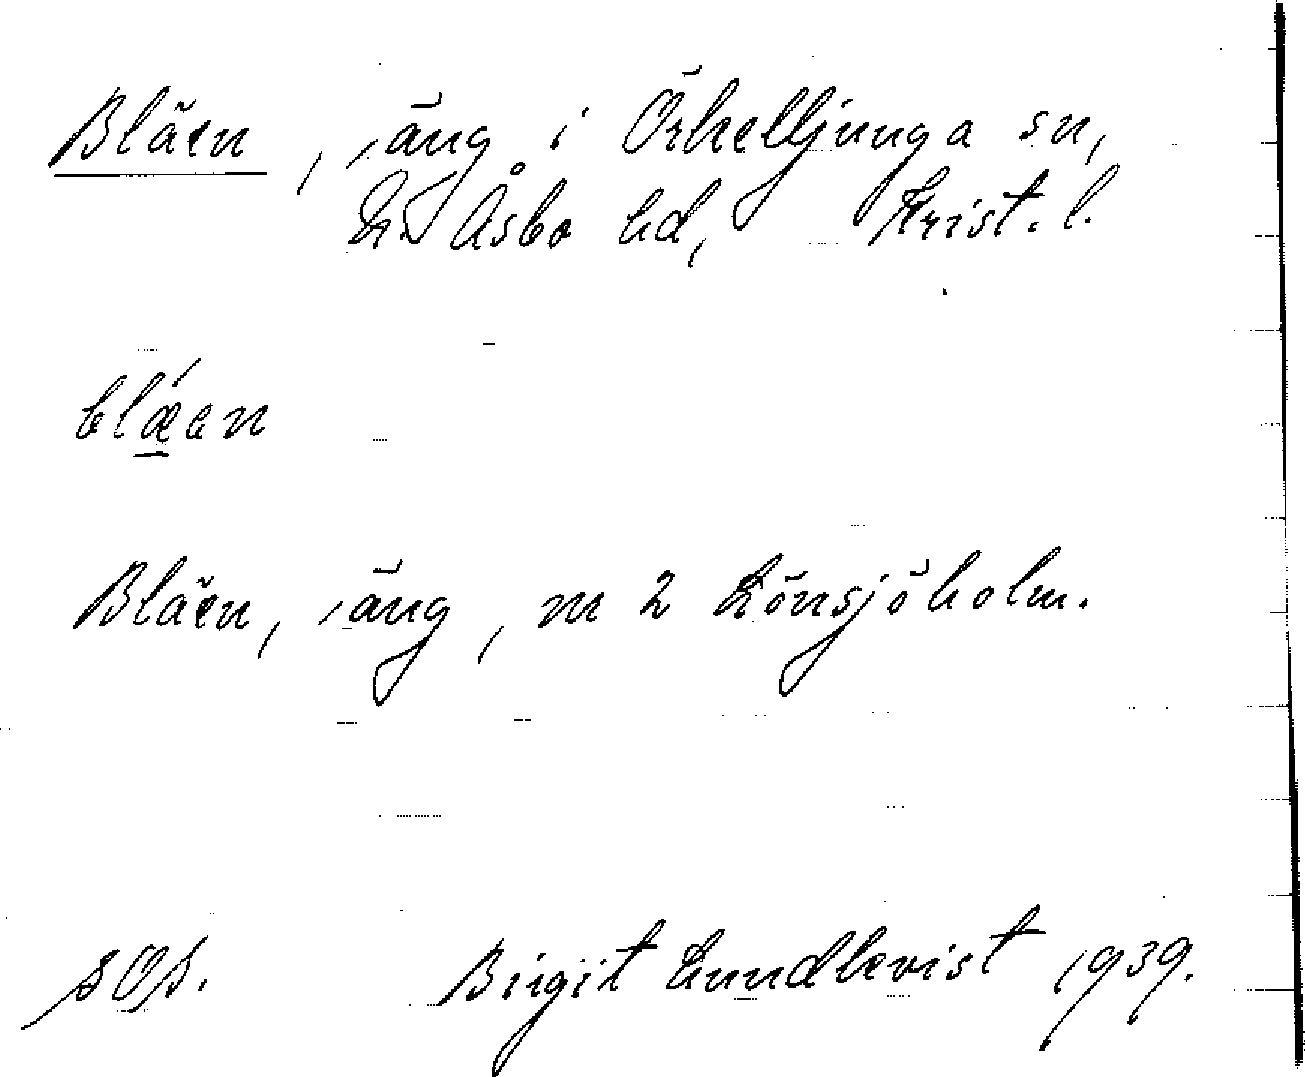 Bläen, äng i Örkelljunga sn,
N. Åsbo hd, Krist. l.
blǽen
Bläen, äng, m 2 Lönsjöholm.
sOp. Birgit Lundkvist 1939.